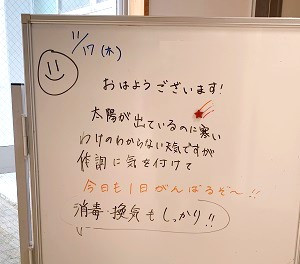 11/17(木)
おはようございます!
太陽が出ているのに寒い
わけのわからない天気ですが
体調に気を付けて
今日も1日がんばるぞ〜!!
消毒・換気もしっかり!!